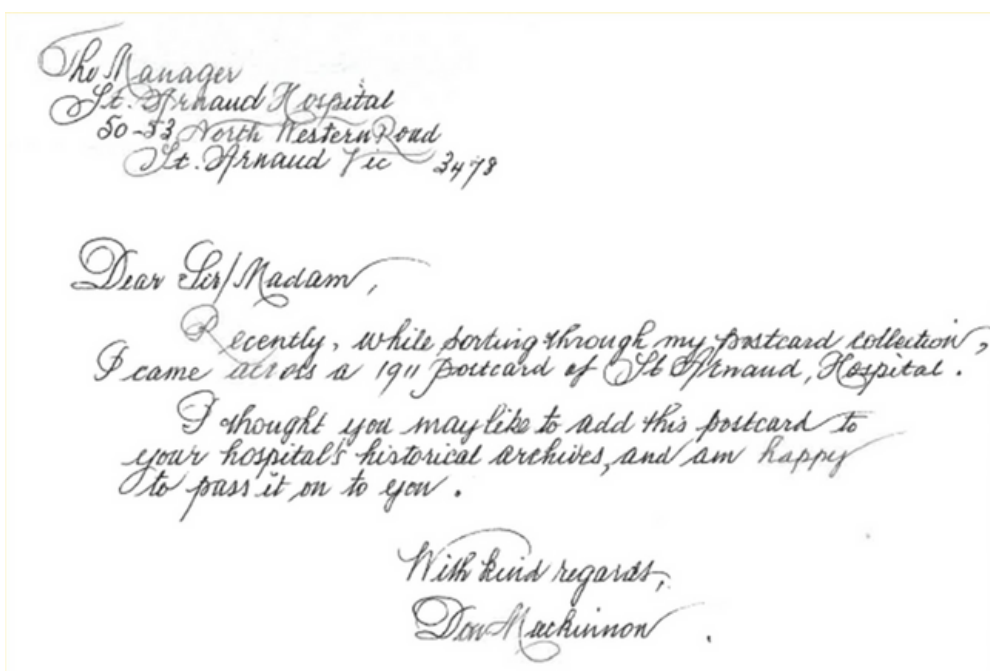 The Manager
St. Arnaud Hospital
50-53 North Western Road
St. Arnaud Vic 3478
Dear Sir/Madam,
Recently, while sorting through my postcard collection,
I came across a 1911 postcard of St Arnaud, Hospital.
I thought you may like to add this postcard to
your hospital's historical archives, and am happy
to pass it on to you.
With kind regards,
Don Mackinnon.